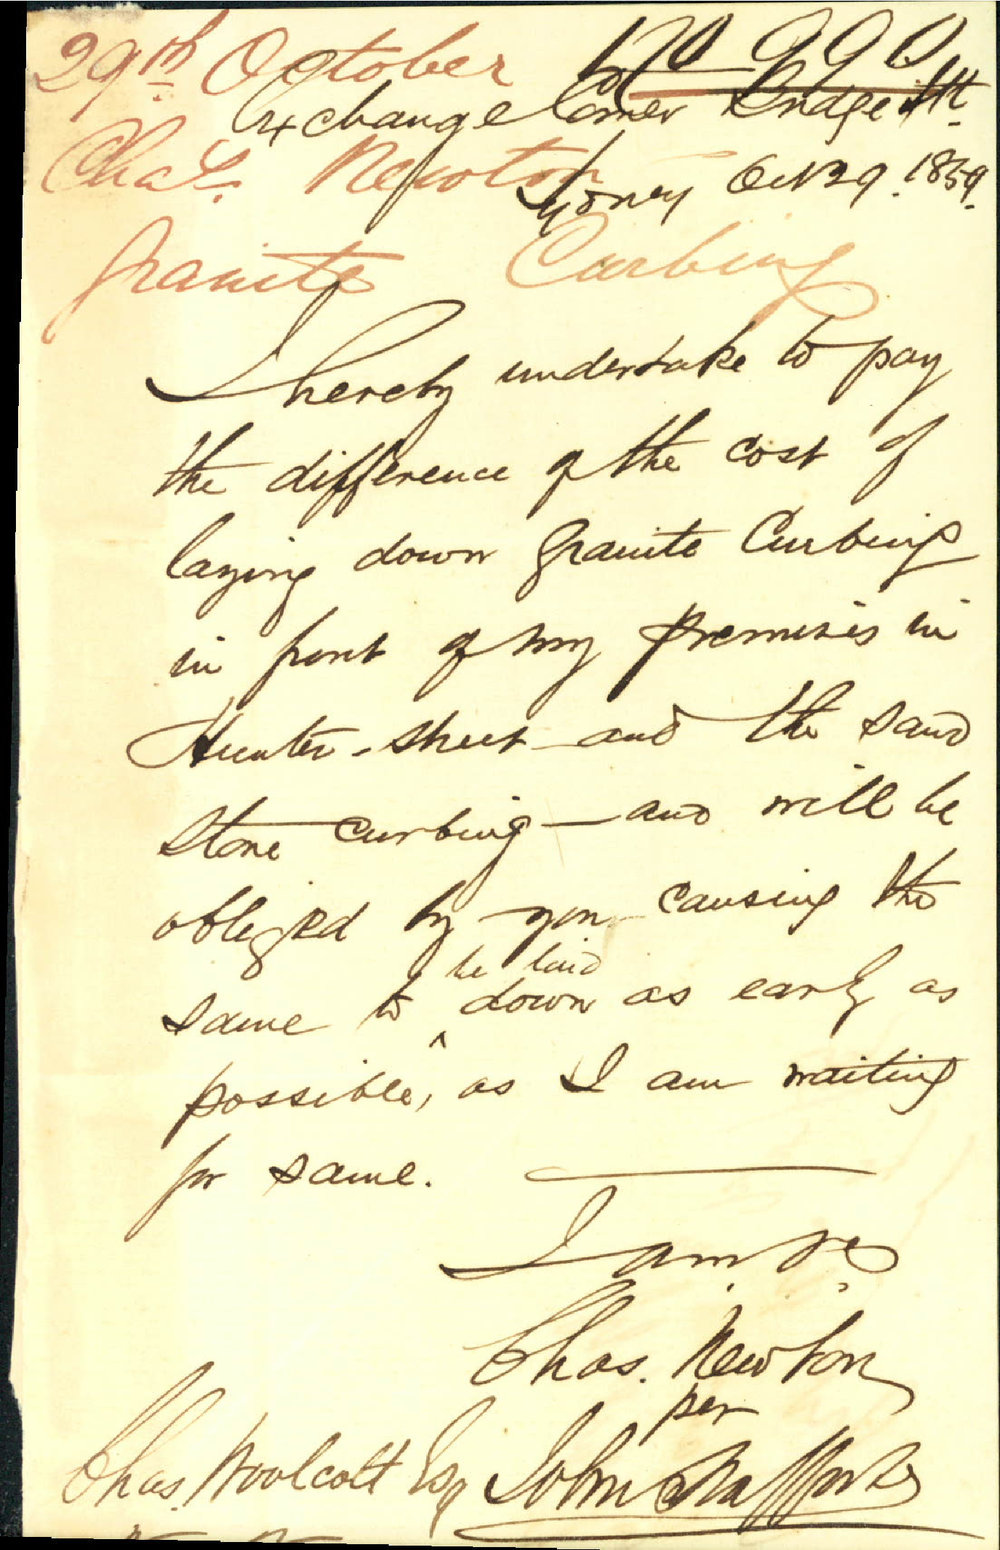 29th October No 990
Exchange Corner Bridge Stt.
Chas. Newton
Sydney Oct 29. 1859.
Granite Curbing
I hereby undertake to pay
the difference of the cost of
laying down Granite Curbing
in front of my premises in
Hunter-street and the sand
stone curbing — and will be
obliged by you causing the
be laid
same to ^ down as early as
possible, as I am waiting
for same.
I am Yrs
Chas. Newton
per
Chas. Woolcott Esq John